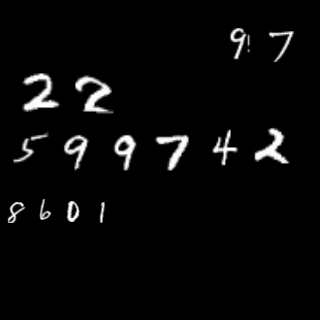 97
22
599742
8601